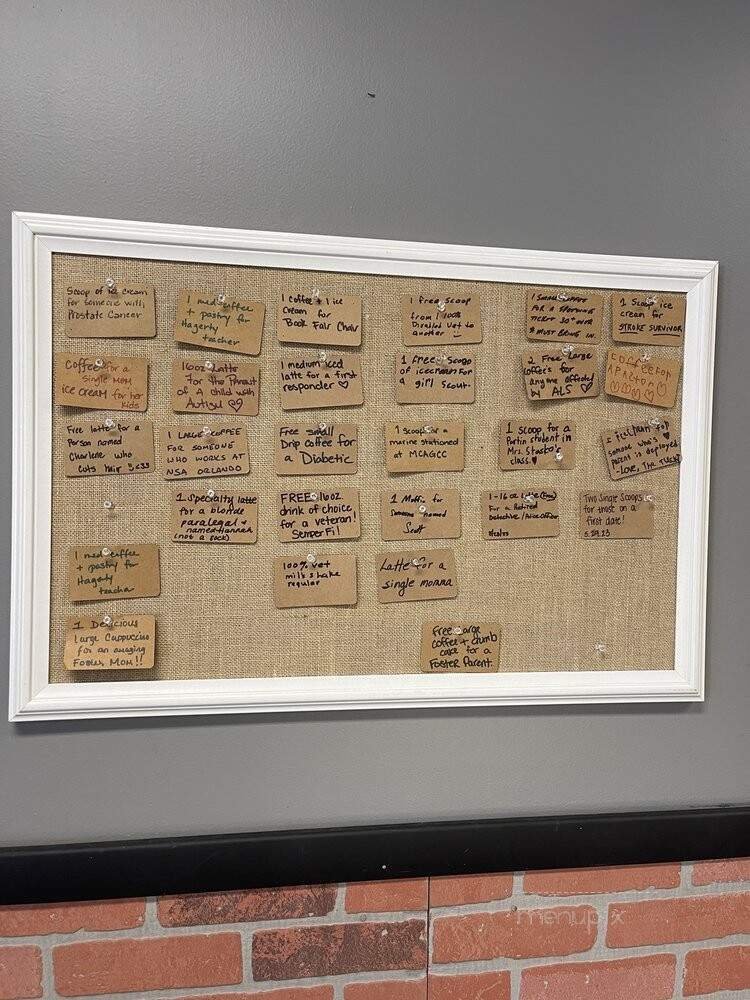 Scoop of ice cream
for someone with
Prostate Cancer
1 med coffee
+ pastry for
Hagerty
teacher
1 coffee + 1 ice
cream for
Book Fair Chair
1 free scoop
from 1 100%
Disabled Vet to
another
1 SMALL COFFEE
FOR A SPEEDING
TICKET 30+ OVER
$ MUST BRING IN.
1 Scoop ice
cream for
STROKE SURVIVOR
Coffee for a
single mom
ice cream for her
kids
16oz Latte
for the Parent
of a child with
Autism ♡
1 medium iced
latte for a first
responder ♡
1 free scoop
of icecream for
a girl scout.
2 Free Large
coffee's for
anyone affected
by ALS
COFFEE FOR
A PASTOR
♡♡♡♡♡
Free latte for a
Person named
Charlene who
cuts hair
1 LARGE COFFEE
FOR SOMEONE
WHO WORKS AT
NSA ORLANDO
Free small
Drip coffee for
a Diabetic
1 scoop for a
marine stationed
at MCAGCC
1 scoop for a
Partin student in
Mrs.
class.♥
someone who's
parent is deployed
-Love, The
1 specialty latte
for a blonde
paralegal
named Hannah
(not a sock)
FREE 16oz
drink of choice
for a veteran!
Semper Fi!
1 Muffin for
Someone named
Scott
1-16 oz Latte
For a Retired
Detective / Police Officer
Two Single Scoops
for those on a
first date!
5.29.23
1 med coffee
+ pastry for
Hagerty
teacher
100% vet
milkshake
regular
Latte for a
single momma
1 Delicious
Large Cappuccino
for an amazing
Foster Mom!!
Free large
coffee + crumb
cake for a
Foster Parent.
menupix